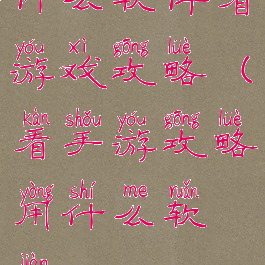 什么软件看
yóu xì gōng lüè
游戏攻略（
kàn shǒu yóu gōng lüè
看手游攻略
yòng shí me ruǎn
用什么软
jiàn